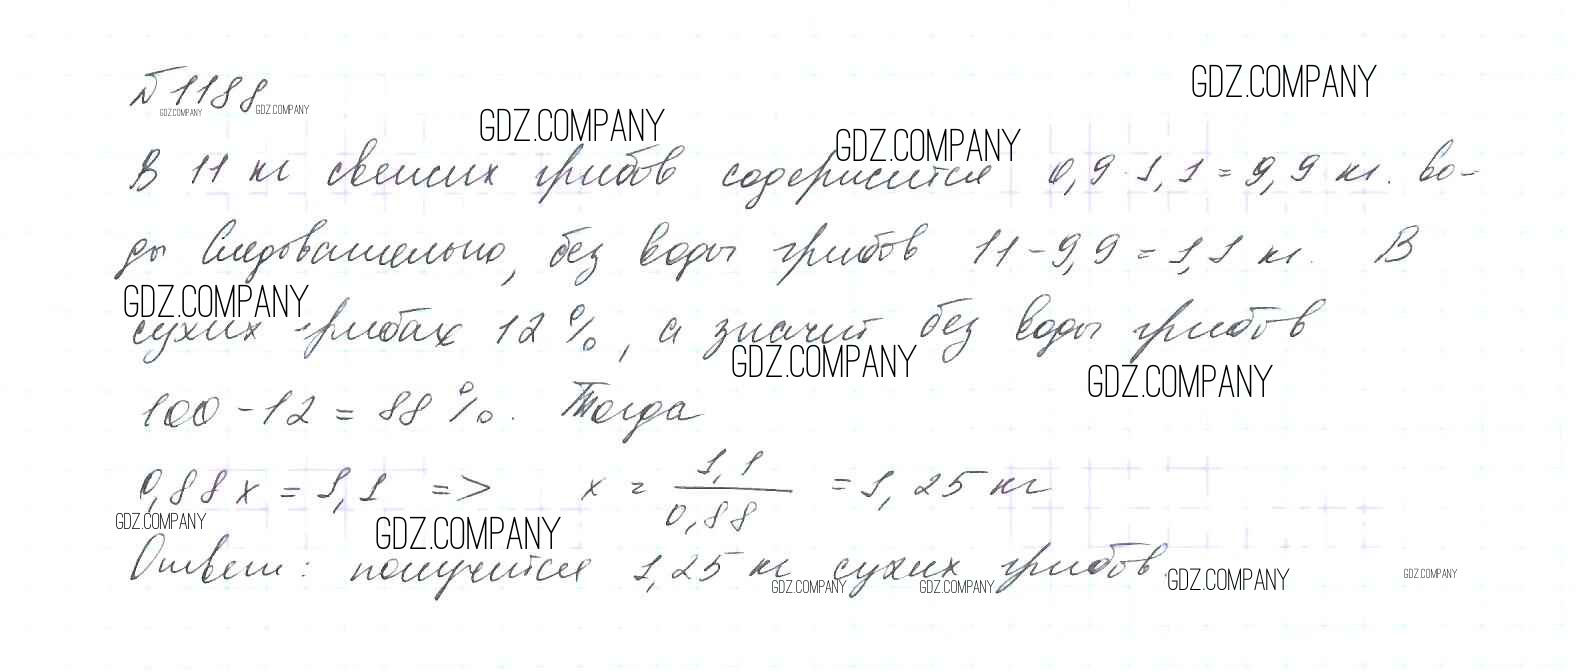 №1188
GDZ.COMPANY
GDZ.COMPANY
GDZ.COMPANY
GDZ.COMPANY
GDZ.COMPANY
В 11 кг свежих грибов содержится 0,9·1,1=9,9 кг. во-
ды Следовательно, без воды грибов 11-9,9=1,1 кг. В
GDZ.COMPANY
сухих грибах 12%, а значит без воды грибов
GDZ.COMPANY
GDZ.COMPANY
100-12=88%. Тогда
0,88x=1,1 => x = 1,1/0,88 = 1,25 кг
GDZ.COMPANY
GDZ.COMPANY
Ответ: получится 1,25 кг сухих грибов.
GDZ.COMPANY
GDZ.COMPANY
GDZ.COMPANY
GDZ.COMPANY